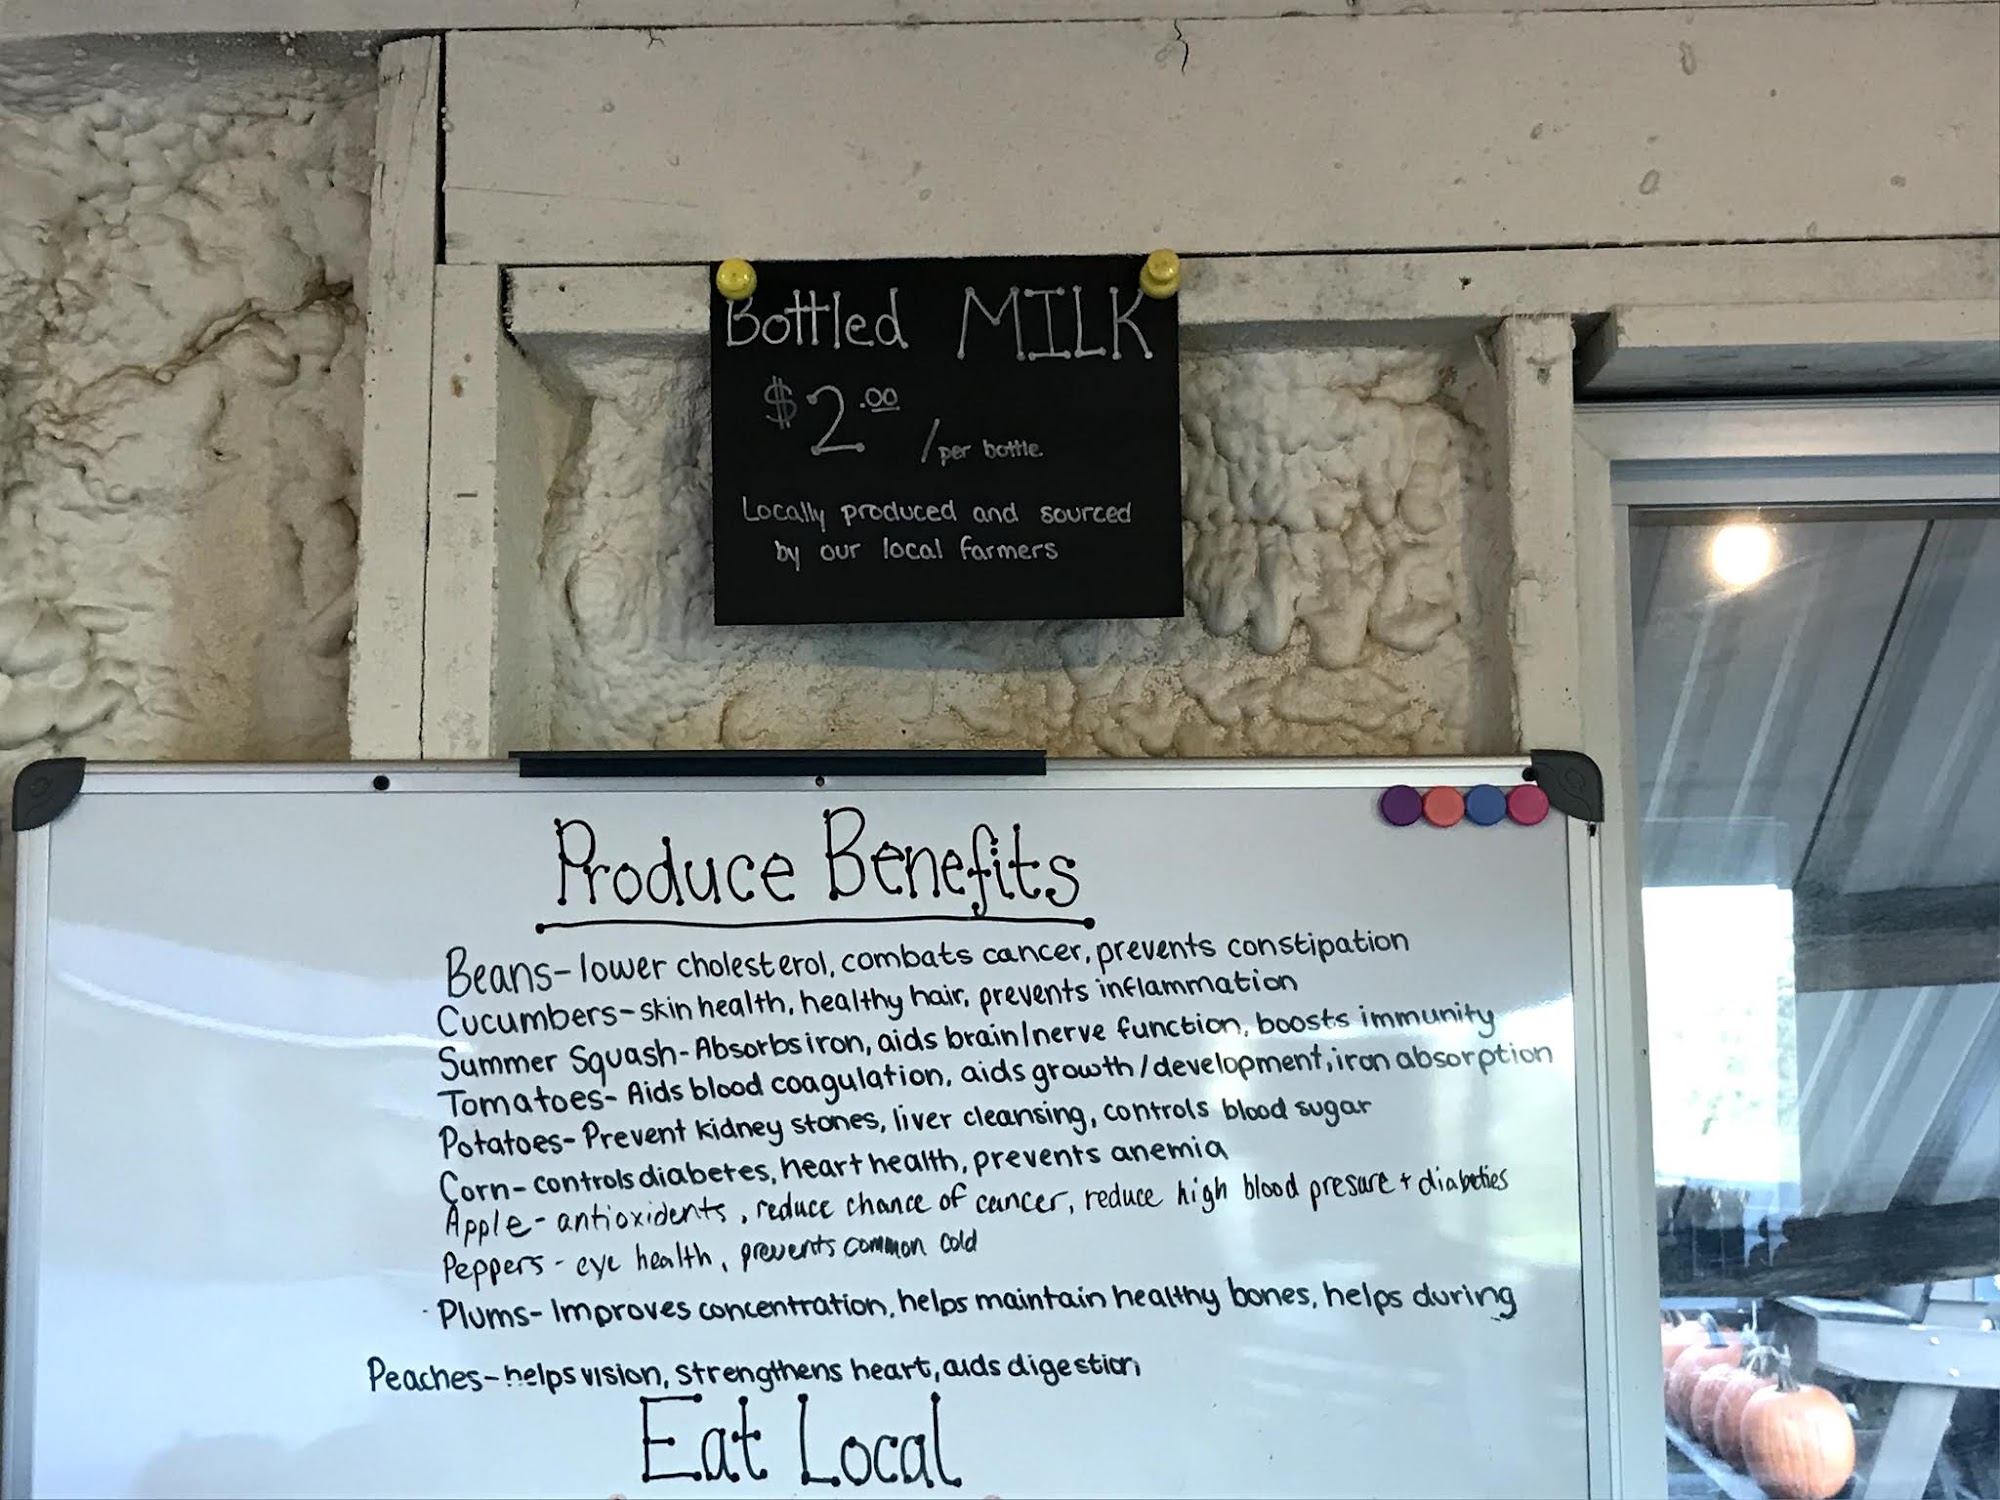 Bottled MILK
$2.00 /per bottle
Locally produced and sourced
by our local farmers
Produce Benefits
Beans- lower cholesterol, combats cancer, prevents constipation
Cucumbers- skin health, healthy hair, prevents inflammation
Summer Squash- Absorbs iron, aids brain/nerve function, boosts immunity
Tomatoes- Aids blood coagulation, aids growth/development, iron absorption
Potatoes- Prevent kidney stones, liver cleansing, controls blood sugar
Corn- controls diabetes, heart health, prevents anemia
Apple- antioxidents, reduce chance of cancer, reduce high blood presure + diabeties
Peppers- eye health, prevents common cold
Plums- Improves concentration, helps maintain healthy bones, helps during
Peaches- helps vision, strengthens heart, aids digestion
Eat Local